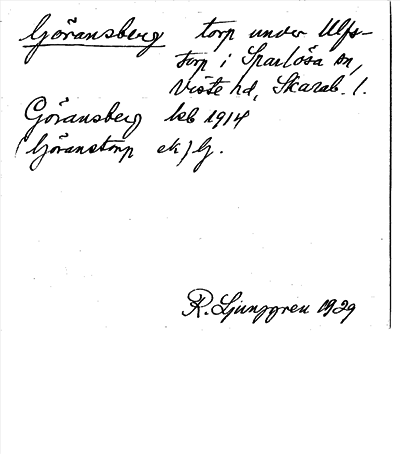 Göransberg torp under Ulfs-
torp i Sparlösa sn,
Viste hd, Skarab. l.
Göransberg ksb 1914
(Göranstorp ek) G.
R. Ljunggren 1929